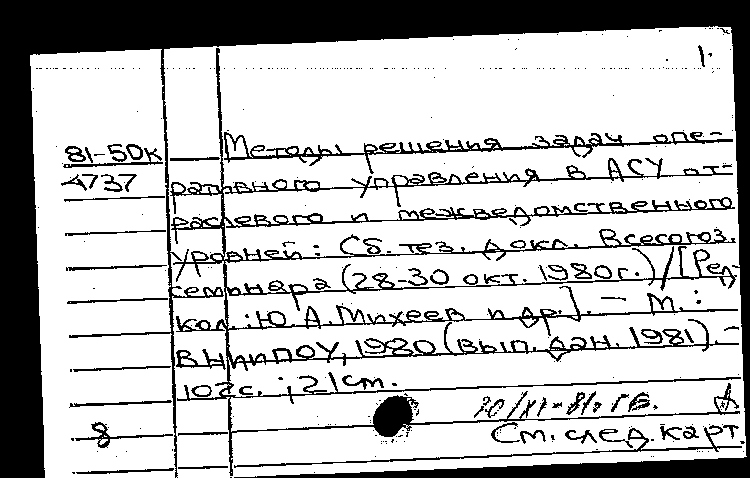 1.
81-50к Методы решения задач опе-
4737 ративного управления в АСУ от-
раслевого и межведомственного
уровней: Сб. тез. докл. Всесоюз.
семинара (28-30 окт. 1980г.)/[Ред-
кол.: Ю.А.Михеев и др.]. – М.:
ВНИИПОУ, 1980 (вып. дан. 1981). –
102с. ; 21см.
20/XI-81. ГБ. А
8 См. след. карт.